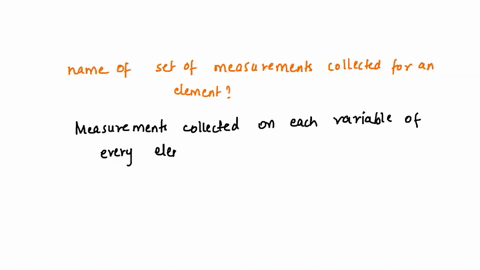 name of set of measurements collected for an
element?
Measurements collected on each variable of
every ele